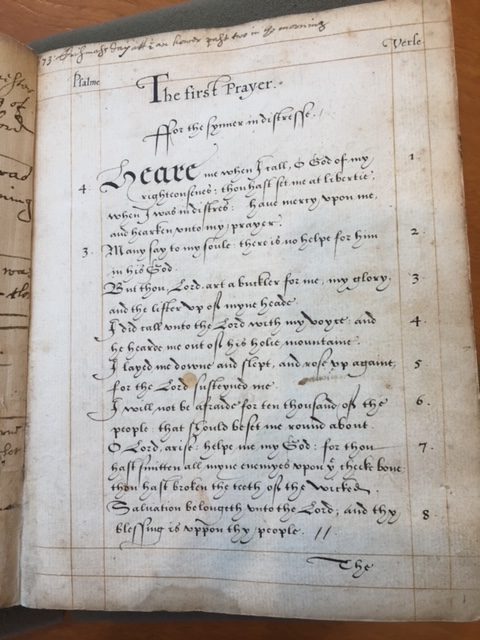 day att an hower past two in the morning
Psalme
Verse
The first Prayer.
ffor the synner in distresse.
4. Heare me when I call, O God of my 1.
righteousnes: thou hast set me at libertie,
when I was in distres: haue mercy upon me,
and hearken vnto my prayer.
3. Many say to my soule: there is no helpe for him 2.
in his God.
But thou, Lord, art a buckler for me, my glory, 3
and the lifter vp of myne heade.
I did call vnto the Lord with my voyce, and 4.
he hearde me out of his holie mountaine.
I layed me downe and slept, and rose vp againe, 5
for the Lord susteyned me.
I will not be afraide for ten thousand of the 6.
people that should beset me round about.
O Lord, arise: helpe me, my God: for thou 7.
hast smitten all myne enemyes vpon ye cheeke bone:
thou hast broken the teeth of the wicked.
Saluation belongeth vnto the Lord; and thy 8
blessing is vppon thy people. //
The